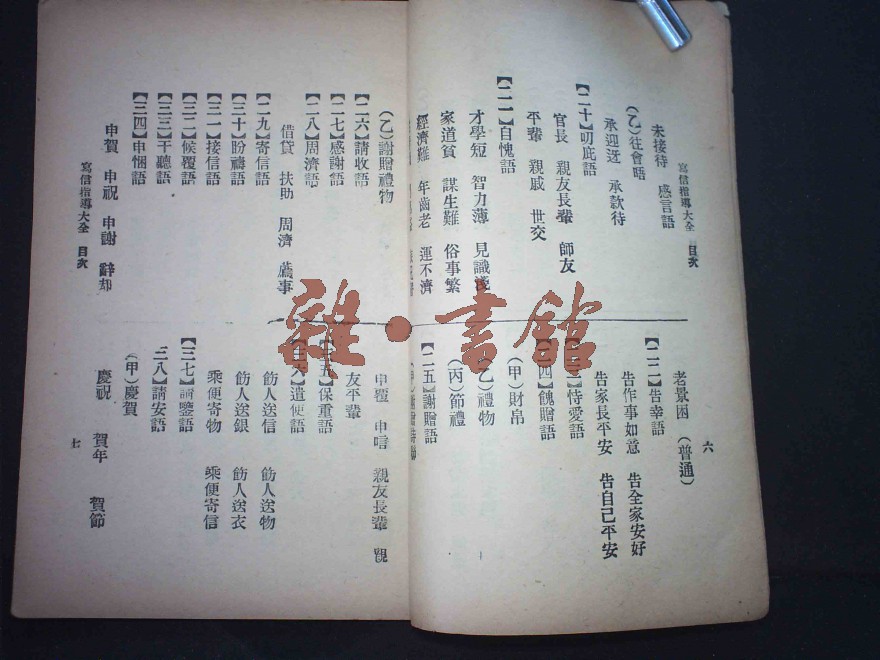 寫信指導大全 目次
六
未接待 感言語
(乙)往會晤
承迎迓 承款待
【二十】叨庇語
官長 親友長輩 師友
平輩 親戚 世交
【二一】自愧語
才學短 智力薄 見識淺
家道貧 謀生難 俗事繁
經濟難 年齒老 運不濟
老景困 (普通)
【二二】告幸語
告作事如意 告全家安好
告家長平安 告自己平安
【二三】恃愛語
【二四】餽贈語
(甲)財帛
(乙)禮物
(丙)節禮
【二五】謝贈語
(乙)謝贈禮物
【二六】請收語
【二七】感謝語
【二八】周濟語
借貸 扶助 周濟 薦事
【二九】寄信語
【三十】盼禱語
【三一】接信語
【三二】候覆語
【三三】干聽語
【三四】申悃語
申賀 申祝 申謝 辭却
申覆 申唁 親友長輩 親
友平輩
【三五】保重語
【三六】遣使語
飭人送信 飭人送物
飭人送銀 飭人送衣
乘便寄物 乘便寄信
【三七】請鑒語
三八】請安語
(甲)慶賀
慶祝 賀年 賀節
寫信指導大全 目次
七
雜·書館